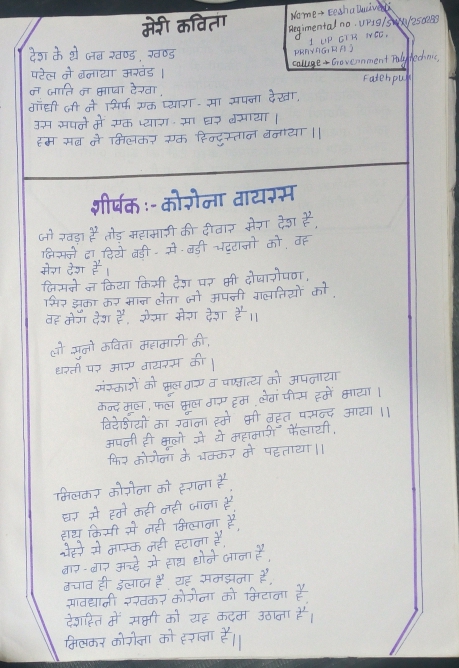 मेरी कविता
Name → Eesha Dwivedi
Regimental no. UP19/
1 UP GTR NCC.
PRAYAGRAJ
college → Government Polytechnic,
Fatehpur
देश के थे जब खण्ड, खण्ड
पटेल ने बनाया अखंड।
न जाति न भाषा देखा,
गाँधी जी ने सिर्फ एक प्यारा-सा सपना देखा,
उस सपने में एक प्यारा-सा घर बसाया।
हम सब ने मिलकर एक हिन्दुस्तान बनाया।।
शीर्षक:- कोरोना वायरस
जो खड़ा है तोड़ महामारी की दीवार मेरा देश है,
जिसने ढा दिये बड़ी-से-बड़ी चट्टानो को, वह
मेरा देश है।
जिसने न किया किसी देश पर भी दोषारोपण,
सिर झुका कर मान लेता जो अपनी गलतियों को,
वह मेरा देश है, ऐसा मेरा देश है।।
लो सुनो कविता महामारी की,
धरती पर आए वायरस की।
संस्कारो को भूल गए व पाश्चात्य को अपनाया
कन्द मूल, फल भूल गए हम लेग पीस हमें भाया।
विदेशियों का खाना हमे भी बहुत पसन्द आया।।
अपनी ही भूलो से ये महामारी फैलायी,
फिर कोरोना के चक्कर में पछताया।।
मिलकर कोरोना को हराना है,
घर से हमे कही नही जाना है,
हाथ किसी से नही मिलाना है,
चेहरे से मास्क नही हटाना है,
बार-बार अच्छे से हाथ धोने जाना है,
बचाव ही इलाज है यह समझना है,
सावधानी रखकर कोरोना को मिटाना है
देशहित में सभी को यह कदम उठाना है,
मिलकर कोरोना को हराना है।।